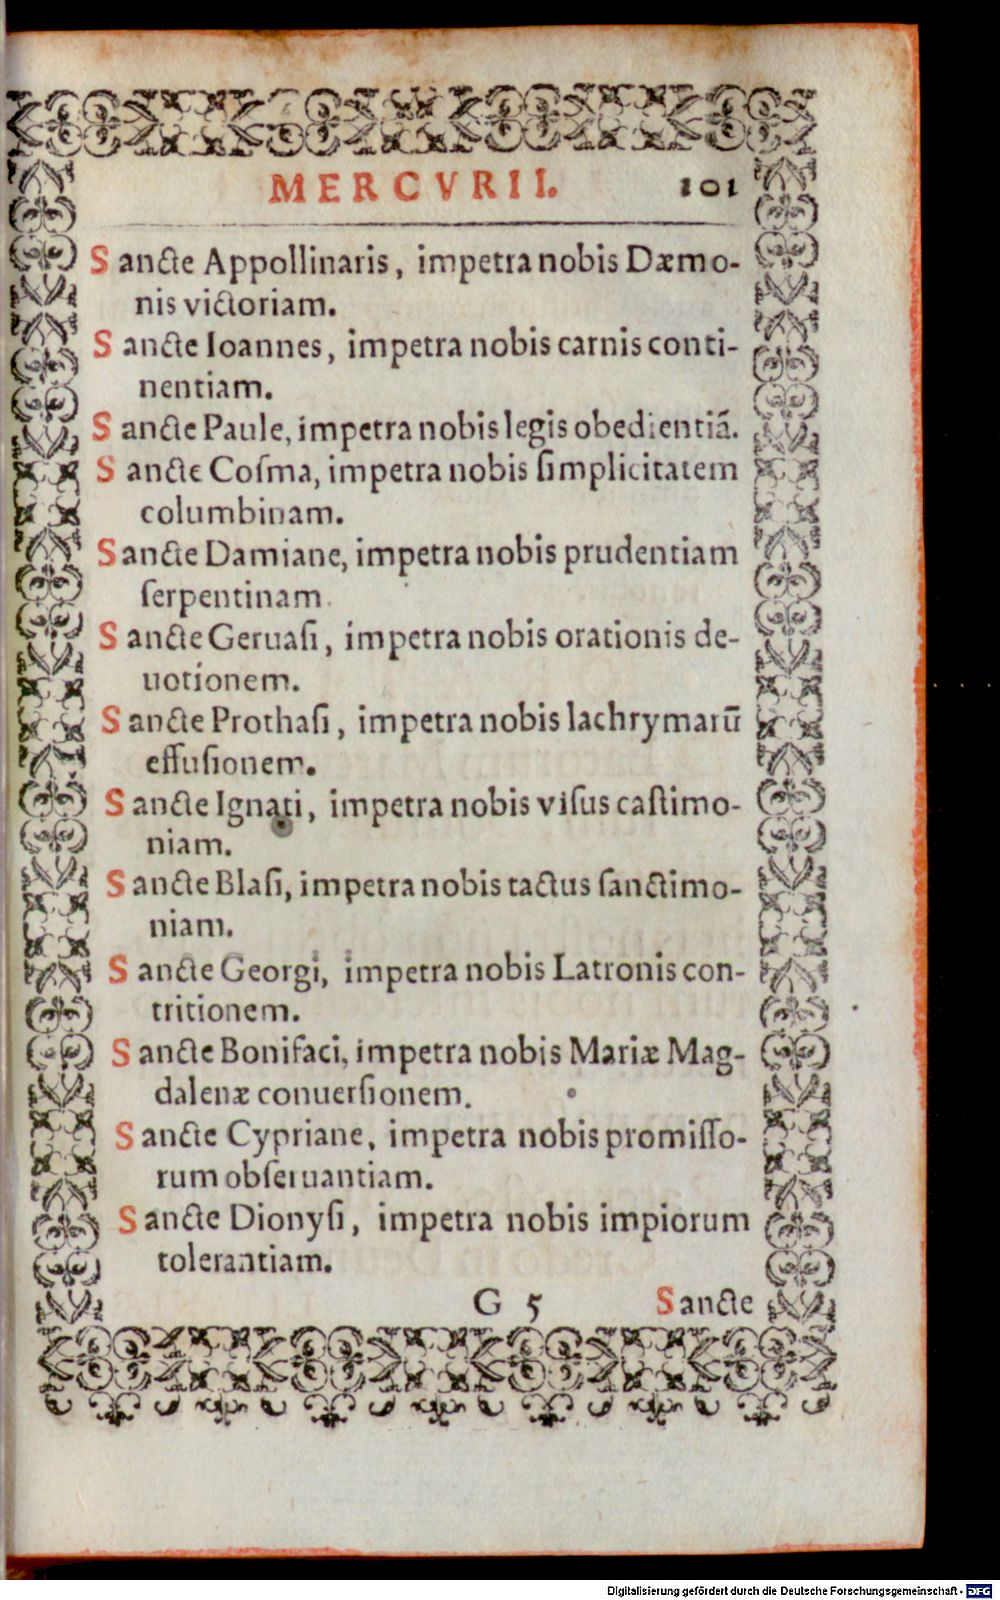 MERCVRII. 101
Sancte Appollinaris, impetra nobis Dæmo-
nis victoriam.
Sancte Ioannes, impetra nobis carnis conti-
nentiam.
Sancte Paule, impetra nobis legis obedientiã.
Sancte Coſma, impetra nobis ſimplicitatem
columbinam.
Sancte Damiane, impetra nobis prudentiam
ſerpentinam.
Sancte Geruaſi, impetra nobis orationis de-
uotionem.
Sancte Prothaſi, impetra nobis lachrymarū
effuſionem.
Sancte Ignati, impetra nobis viſus caſtimo-
niam.
Sancte Blaſi, impetra nobis tactus ſanctimo-
niam.
Sancte Georgi, impetra nobis Latronis con-
tritionem.
Sancte Bonifaci, impetra nobis Mariæ Mag-
dalenæ conuerſionem.
Sancte Cypriane, impetra nobis promiſſo-
rum obſeruantiam.
Sancte Dionyſi, impetra nobis impiorum
tolerantiam.
G 5 Sancte
Digitalisierung gefördert durch die Deutsche Forschungsgemeinschaft - DFG